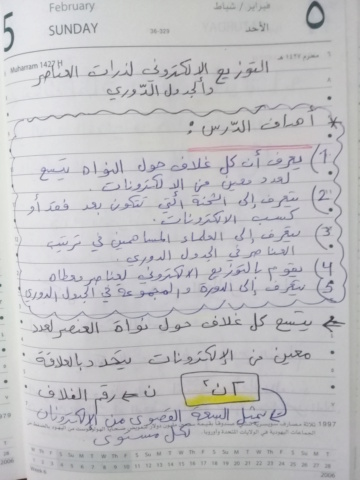 5
February
SUNDAY
36-329
فبراير / شباط
الأحد
٥
Muharram 1427 H
٦ محرم ١٤٢٧ هـ
التوزيع الإلكتروني لذرات العناصر
والجدول الدّوري
* أهداف الدّرس:
1) يعرف أن كل غلاف حول النواة يتسع
لعدد معين من الإلكترونات.
2) يتعرف إلى الشحنة التي تتكون بعد فقد أو
كسب الإلكترونات.
3) يتعرف إلى العلماء المساهمين في ترتيب
العناصر في الجدول الدوري.
4) يقوم بالتوزيع الإلكتروني لعناصر معطاه
5) يتعرف إلى الدورة والمجموعة في الجدول الدوري
يتسع كل غلاف حول نواة العنصر لعدد
معين من الإلكترونات يتحدد بالعلاقة
٢ن٢ ن ← رقم الغلاف
يمثل السعة القصوى من الإلكترونات
لكل مستوى
2006